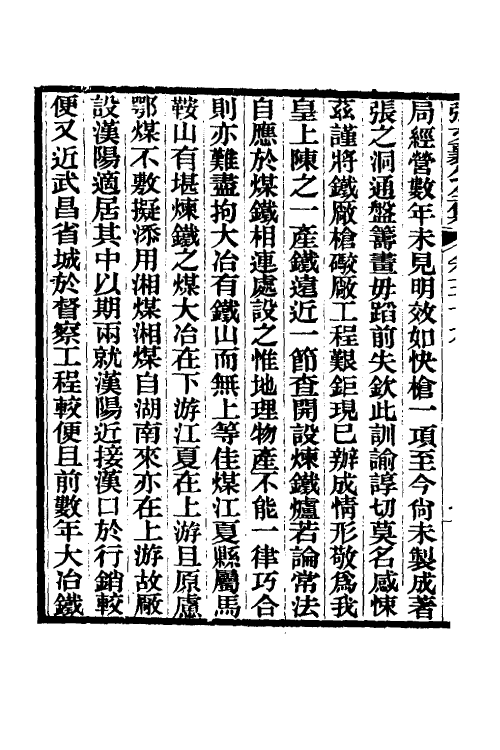 局經營數年未見明效如快槍一項至今尙未製成著
張之洞通盤籌畫毋蹈前失欽此訓諭諄切莫名感悚
茲謹將鐵厰槍礮厰工程艱鉅現已辦成情形敬爲我
皇上陳之一產鐵遠近一節查開設煉鐵爐若論常法
自應於煤鐵相連處設之惟地理物產不能一律巧合
則亦難盡拘大冶有鐵山而無上等佳煤江夏縣屬馬
鞍山有堪煉鐵之煤大冶在下游江夏在上游且原慮
鄂煤不敷擬添用湘煤湘煤自湖南來亦在上游故厰
設漢陽適居其中以期兩就漢陽近接漢口於行銷較
便又近武昌省城於督察工程較便且前數年大冶鐵